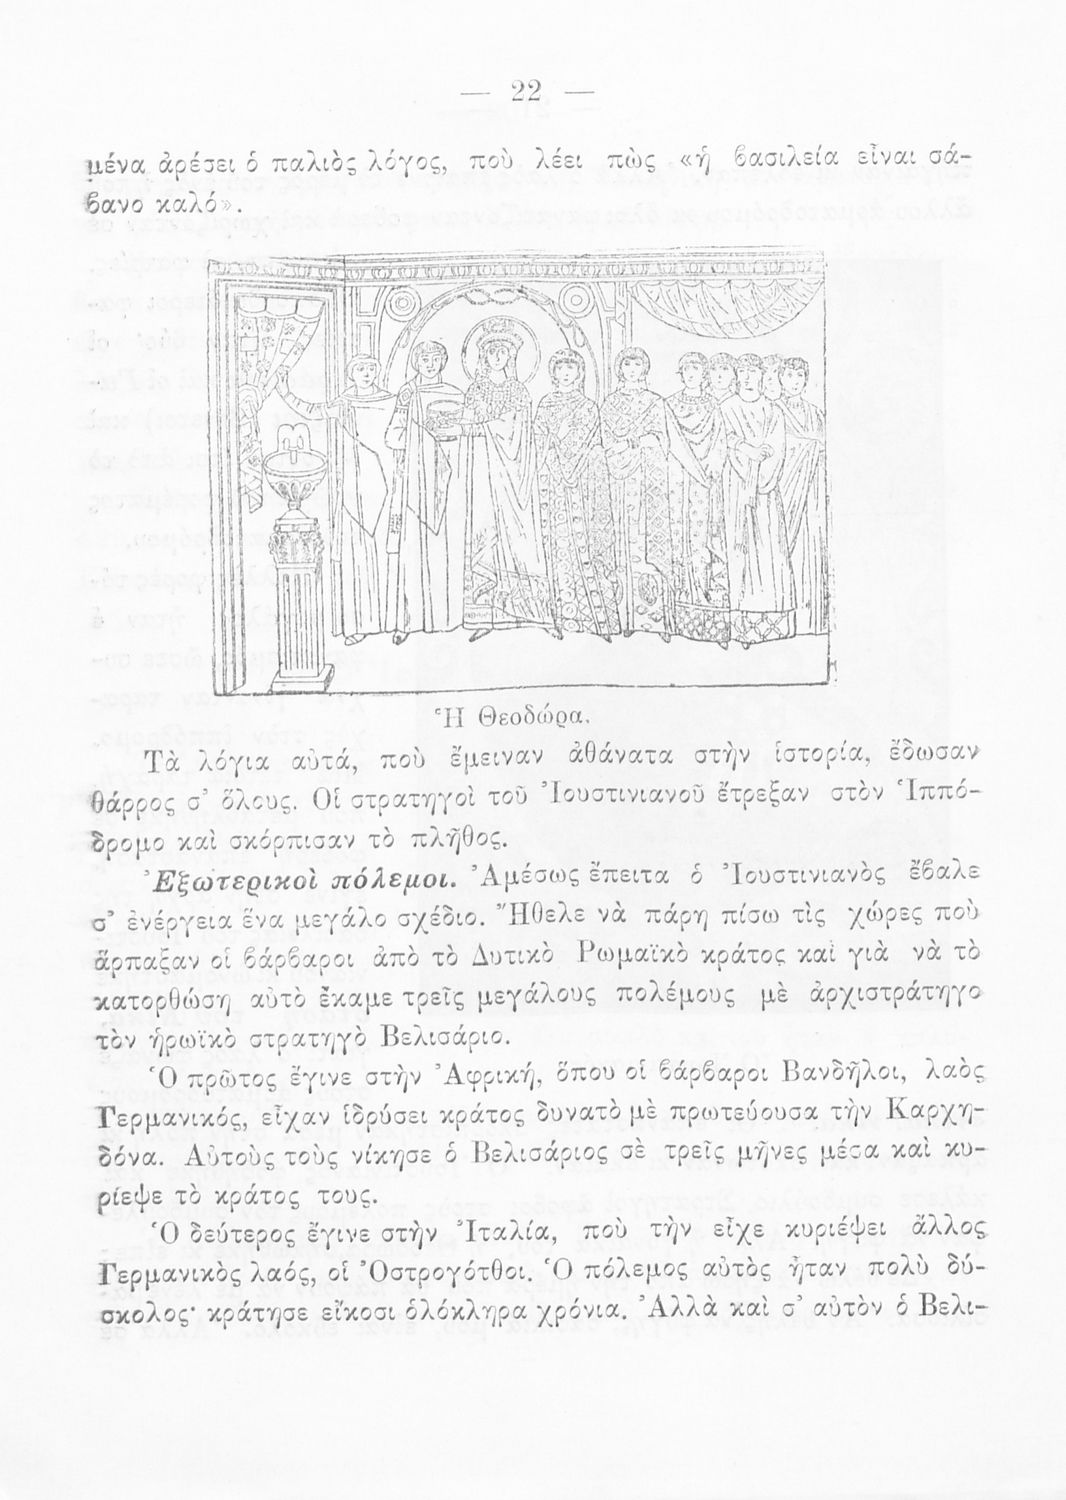 — 22 —
μένα ἀρέσει ὁ παλιὸς λόγος, ποὺ λέει πὼς «ἡ βασιλεία εἶναι σά-
βανο καλό».
Ἡ Θεοδώρα.
Τὰ λόγια αὐτά, ποὺ ἔμειναν ἀθάνατα στὴν ἱστορία, ἔδωσαν
θάρρος σ' ὅλους. Οἱ στρατηγοὶ τοῦ Ἰουστινιανοῦ ἔτρεξαν στὸν Ἱππό-
δρομο καὶ σκόρπισαν τὸ πλῆθος.
Ἐξωτερικοὶ πόλεμοι. Ἀμέσως ἔπειτα ὁ Ἰουστινιανὸς ἔβαλε
σ' ἐνέργεια ἕνα μεγάλο σχέδιο. Ἤθελε νὰ πάρη πίσω τὶς χώρες ποὺ
ἅρπαξαν οἱ βάρβαροι ἀπὸ τὸ Δυτικὸ Ρωμαϊκὸ κράτος καὶ γιὰ νὰ τὸ
κατορθώση αὐτὸ ἔκαμε τρεῖς μεγάλους πολέμους μὲ ἀρχιστράτηγο
τὸν ἡρωϊκὸ στρατηγὸ Βελισάριο.
Ὁ πρῶτος ἔγινε στὴν Ἀφρική, ὅπου οἱ βάρβαροι Βανδῆλοι, λαὸς
Γερμανικός, εἶχαν ἱδρύσει κράτος δυνατὸ μὲ πρωτεύουσα τὴν Καρχη-
δόνα. Αὐτοὺς τοὺς νίκησε ὁ Βελισάριος σὲ τρεῖς μῆνες μέσα καὶ κυ-
ρίεψε τὸ κράτος τους.
Ὁ δεύτερος ἔγινε στὴν Ἰταλία, ποὺ τὴν εἶχε κυριέψει ἄλλος
Γερμανικὸς λαός, οἱ Ὀστρογότθοι. Ὁ πόλεμος αὐτὸς ἦταν πολὺ δύ-
σκολος· κράτησε εἴκοσι ὁλόκληρα χρόνια. Ἀλλὰ καὶ σ' αὐτὸν ὁ Βελι-